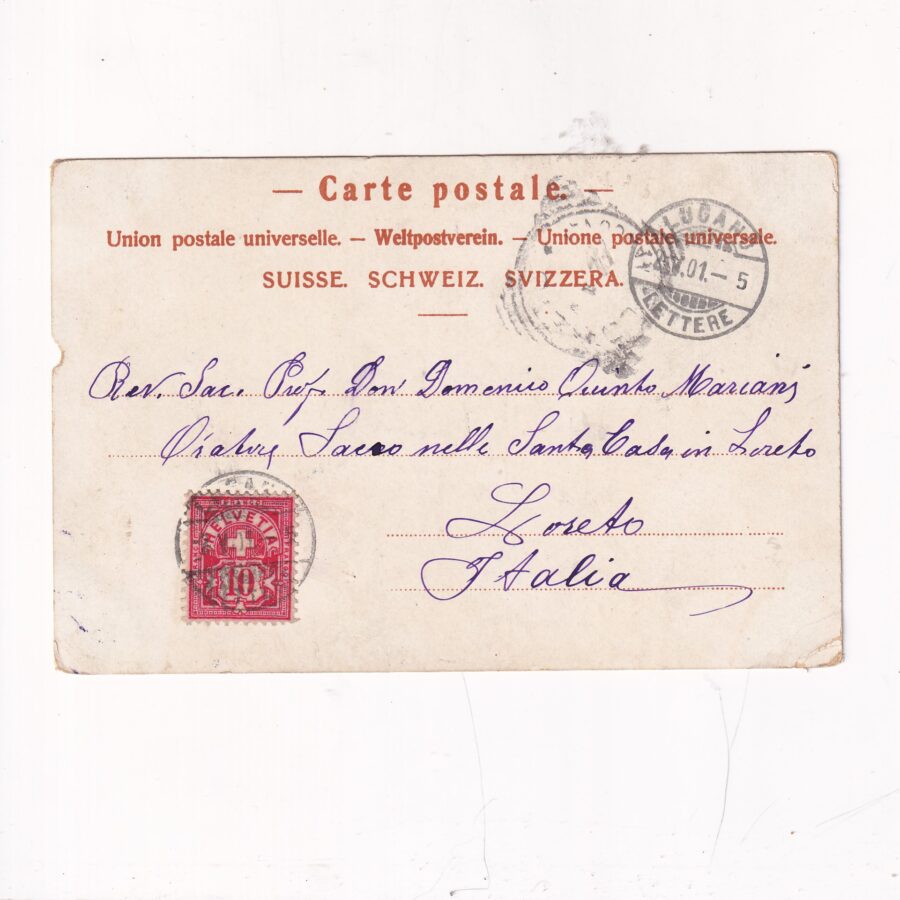 — Carte postale. —
Union postale universelle. — Weltpostverein. — Unione postale universale.
SUISSE. SCHWEIZ. SVIZZERA.
LUGANO
01. – 5
LETTERE
Rev. Sac. Prof. Don Domenico Quinto Mariani
Oratore Sacro nella Santa Casa in Loreto
Loreto
Italia
FRANCO
HELVETIA
10